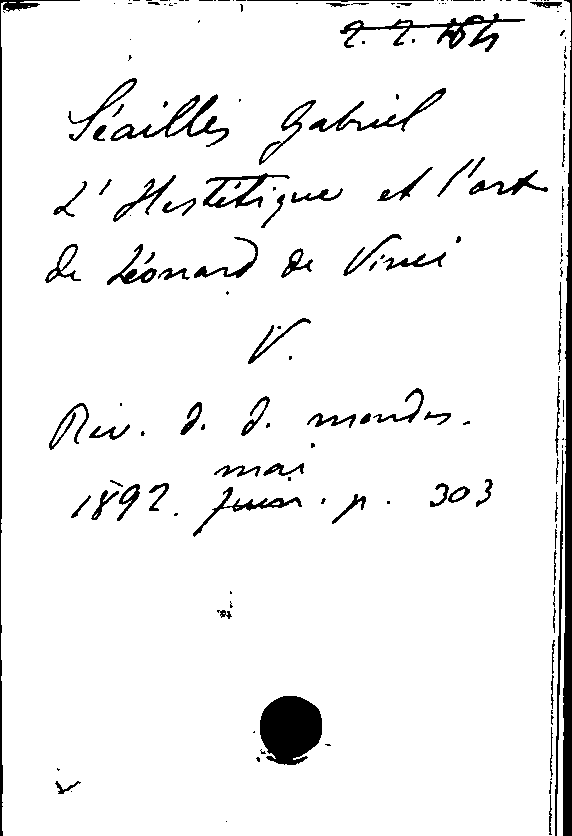 Séailles Gabriel
L'Hestétique et l'art
de Léonard de Vinci
V.
Rev. d. d. mondes.
mai
1892. juin. p. 303